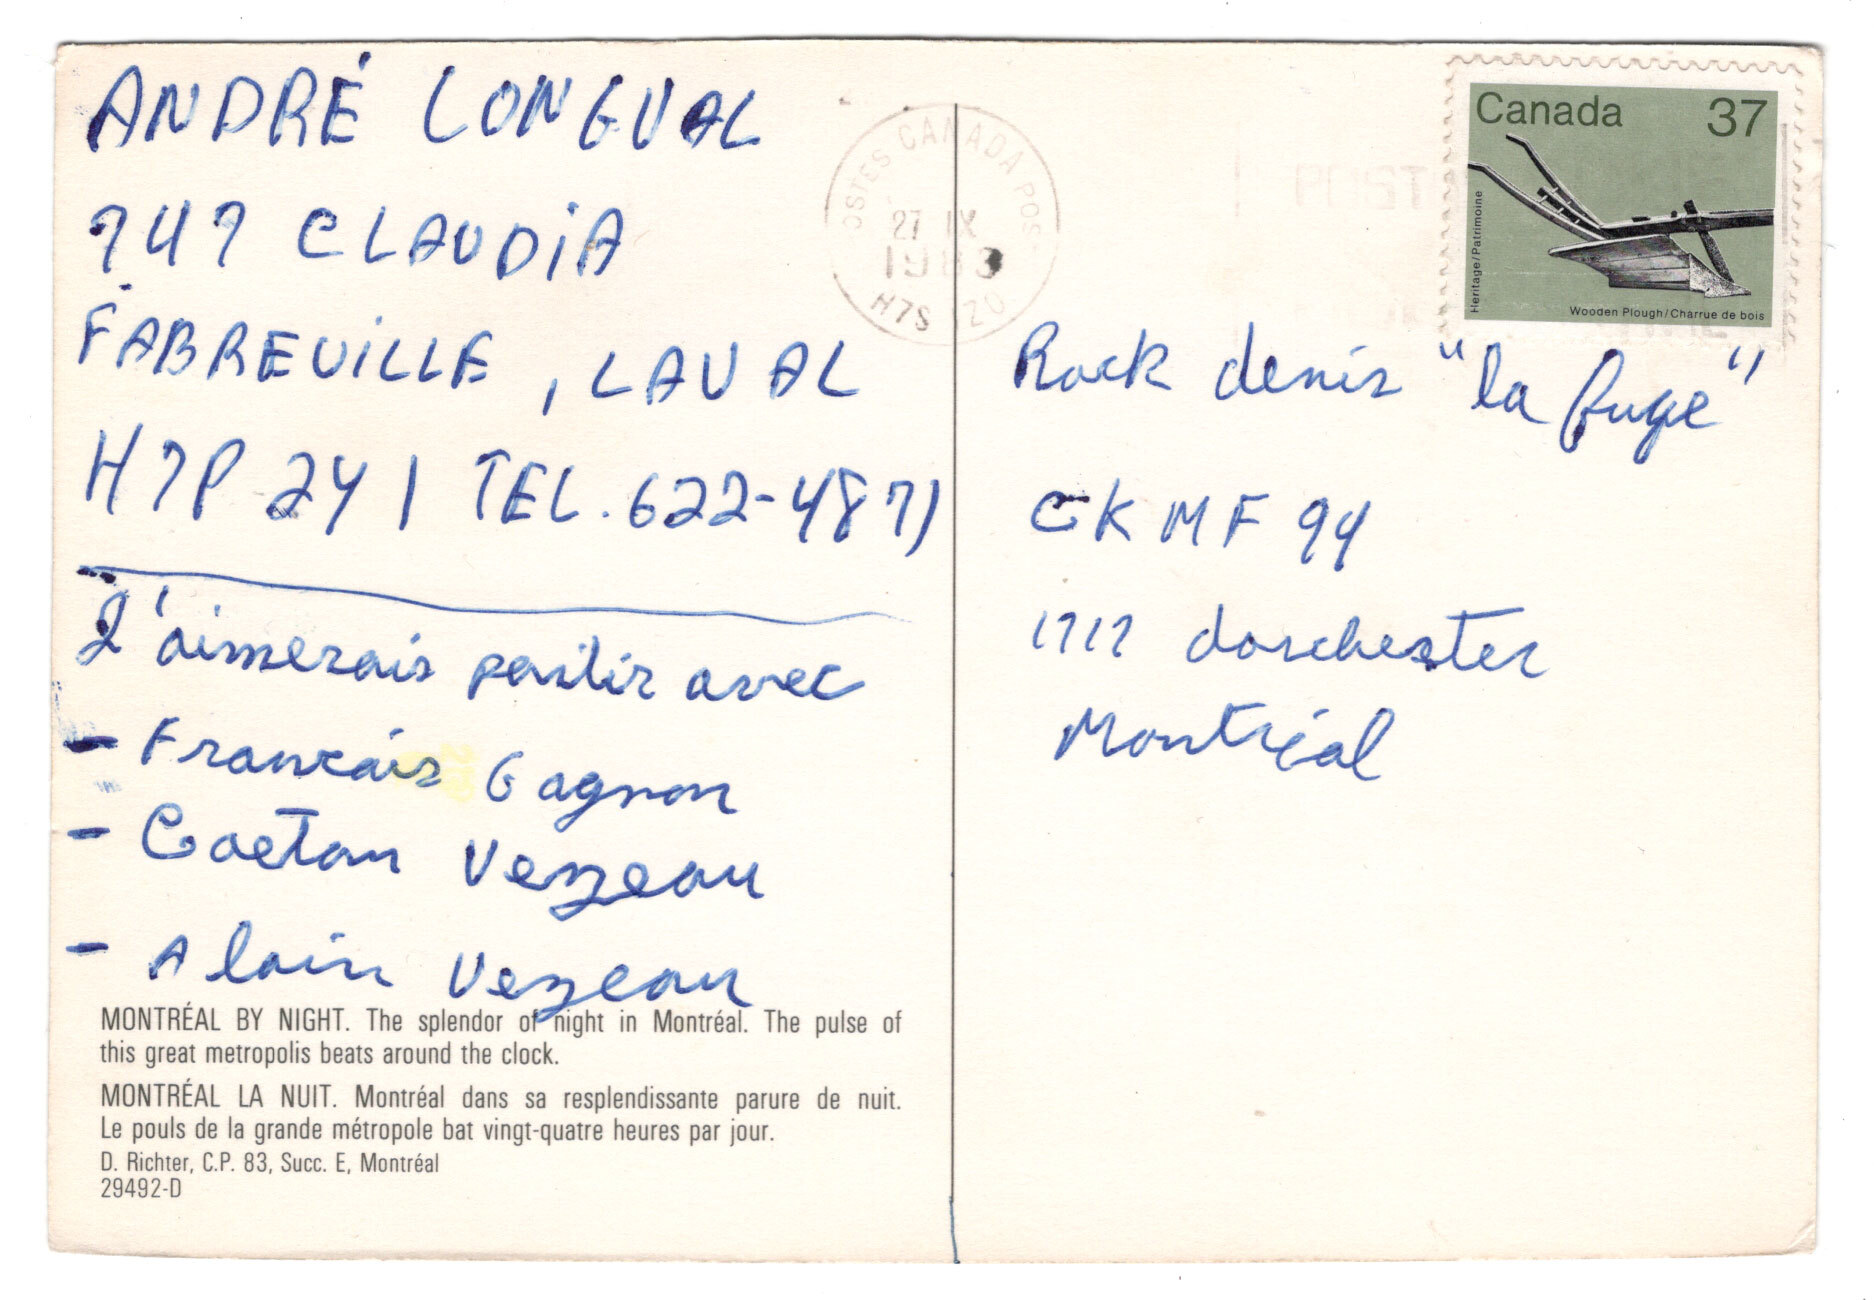 ANDRÉ LONGVAL
747 CLAUDIA
FABREVILLE, LAVAL
H7P 2Y1 TEL. 622-4871
J'aimerais partir avec
- Francais Gagnon
- Gaetan Vezeau
- Alain Vezeau
MONTRÉAL BY NIGHT. The splendor of night in Montréal. The pulse of
this great metropolis beats around the clock.
MONTRÉAL LA NUIT. Montréal dans sa resplendissante parure de nuit.
Le pouls de la grande métropole bat vingt-quatre heures par jour.
D. Richter, C.P. 83, Succ. E, Montréal
29492-D
OSTES CANADA POS
27 IX
1983
H7S 2Z0
POST
Canada 37
Heritage/Patrimoine
Wooden Plough/Charrue de bois
Rock denis "la fuge"
CKMF 94
1717 dorchester
Montréal